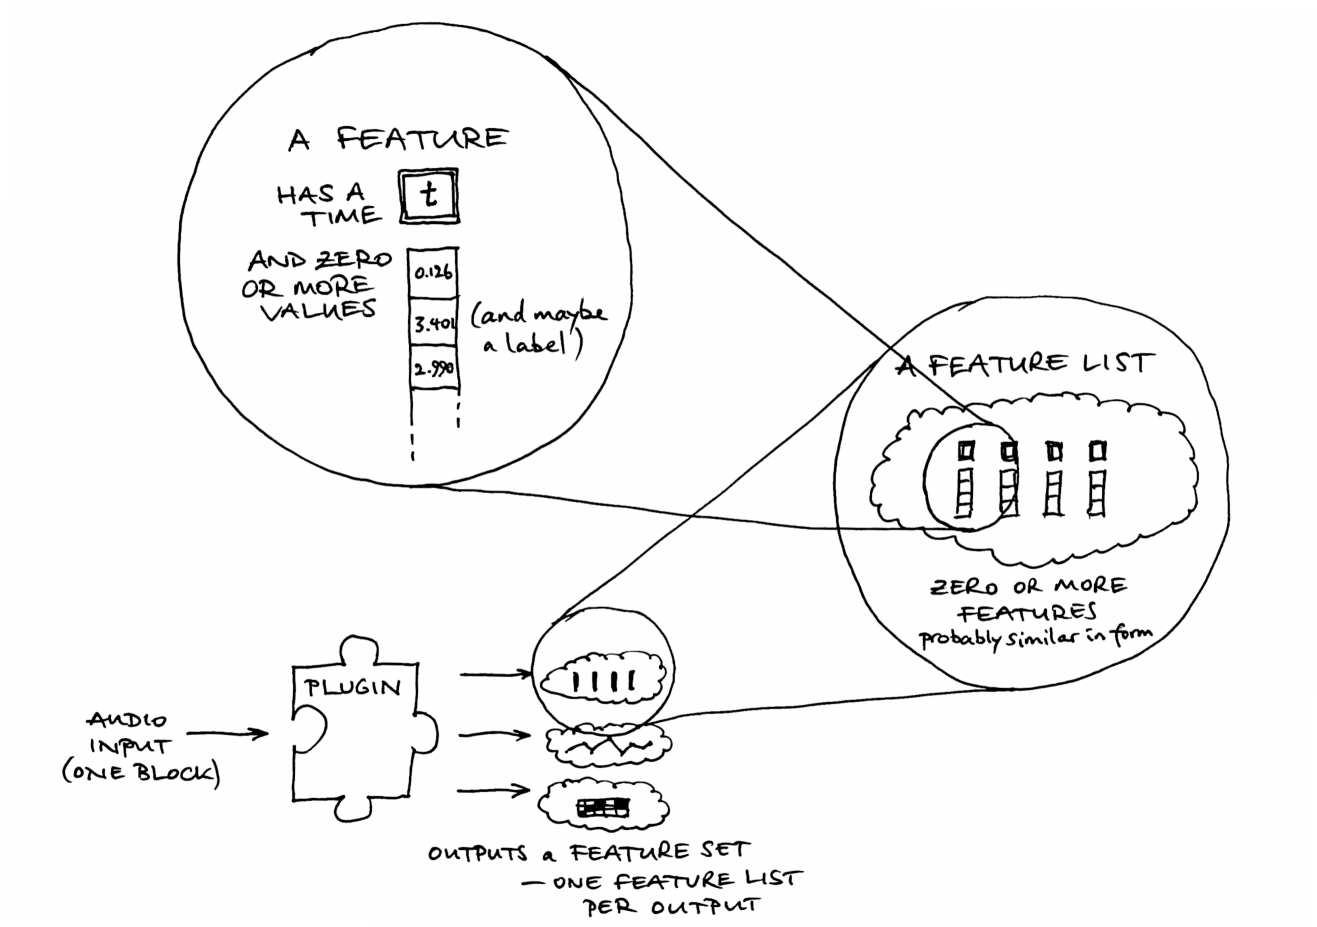 A FEATURE
HAS A
TIME
t
AND ZERO
OR MORE
VALUES
0.126
3.401
2.990
(and maybe
a label)
A FEATURE LIST
ZERO OR MORE
FEATURES
probably similar in form
PLUGIN
AUDIO
INPUT
(ONE BLOCK)
OUTPUTS a FEATURE SET
— ONE FEATURE LIST
PER OUTPUT